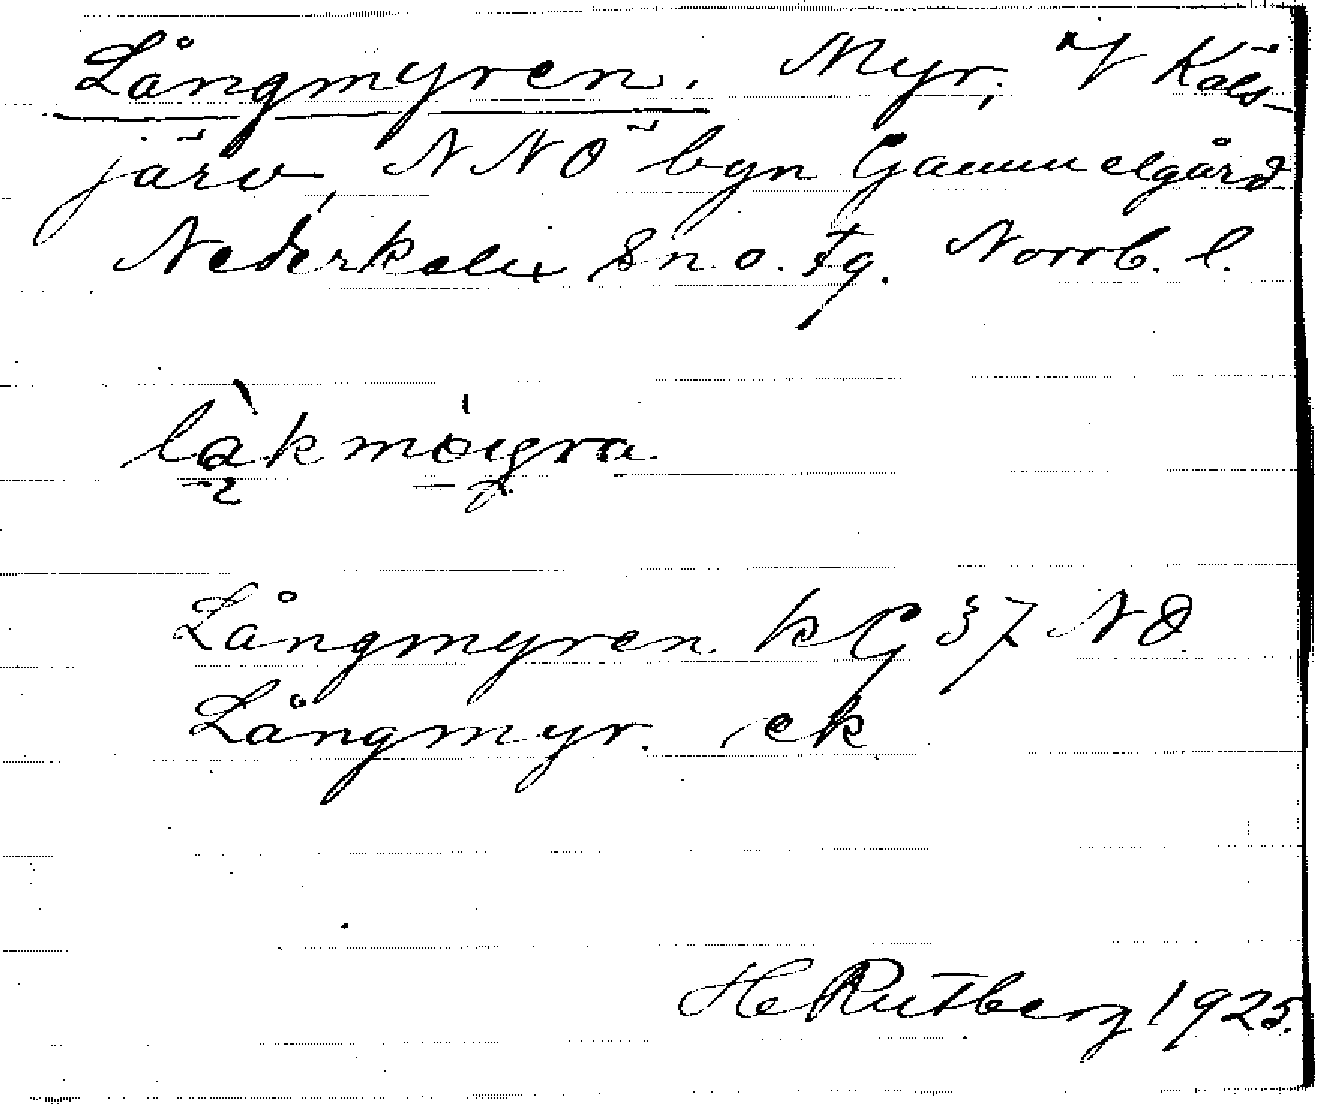 Långmyren. Myr, V Käls-
järv, NNÖ byn Gammelgård
Nederkalix Sn o. Fg. Norrb. l.
Långmyren. kG 37 NO
Långmyr. ek
H Rutberg 1925.